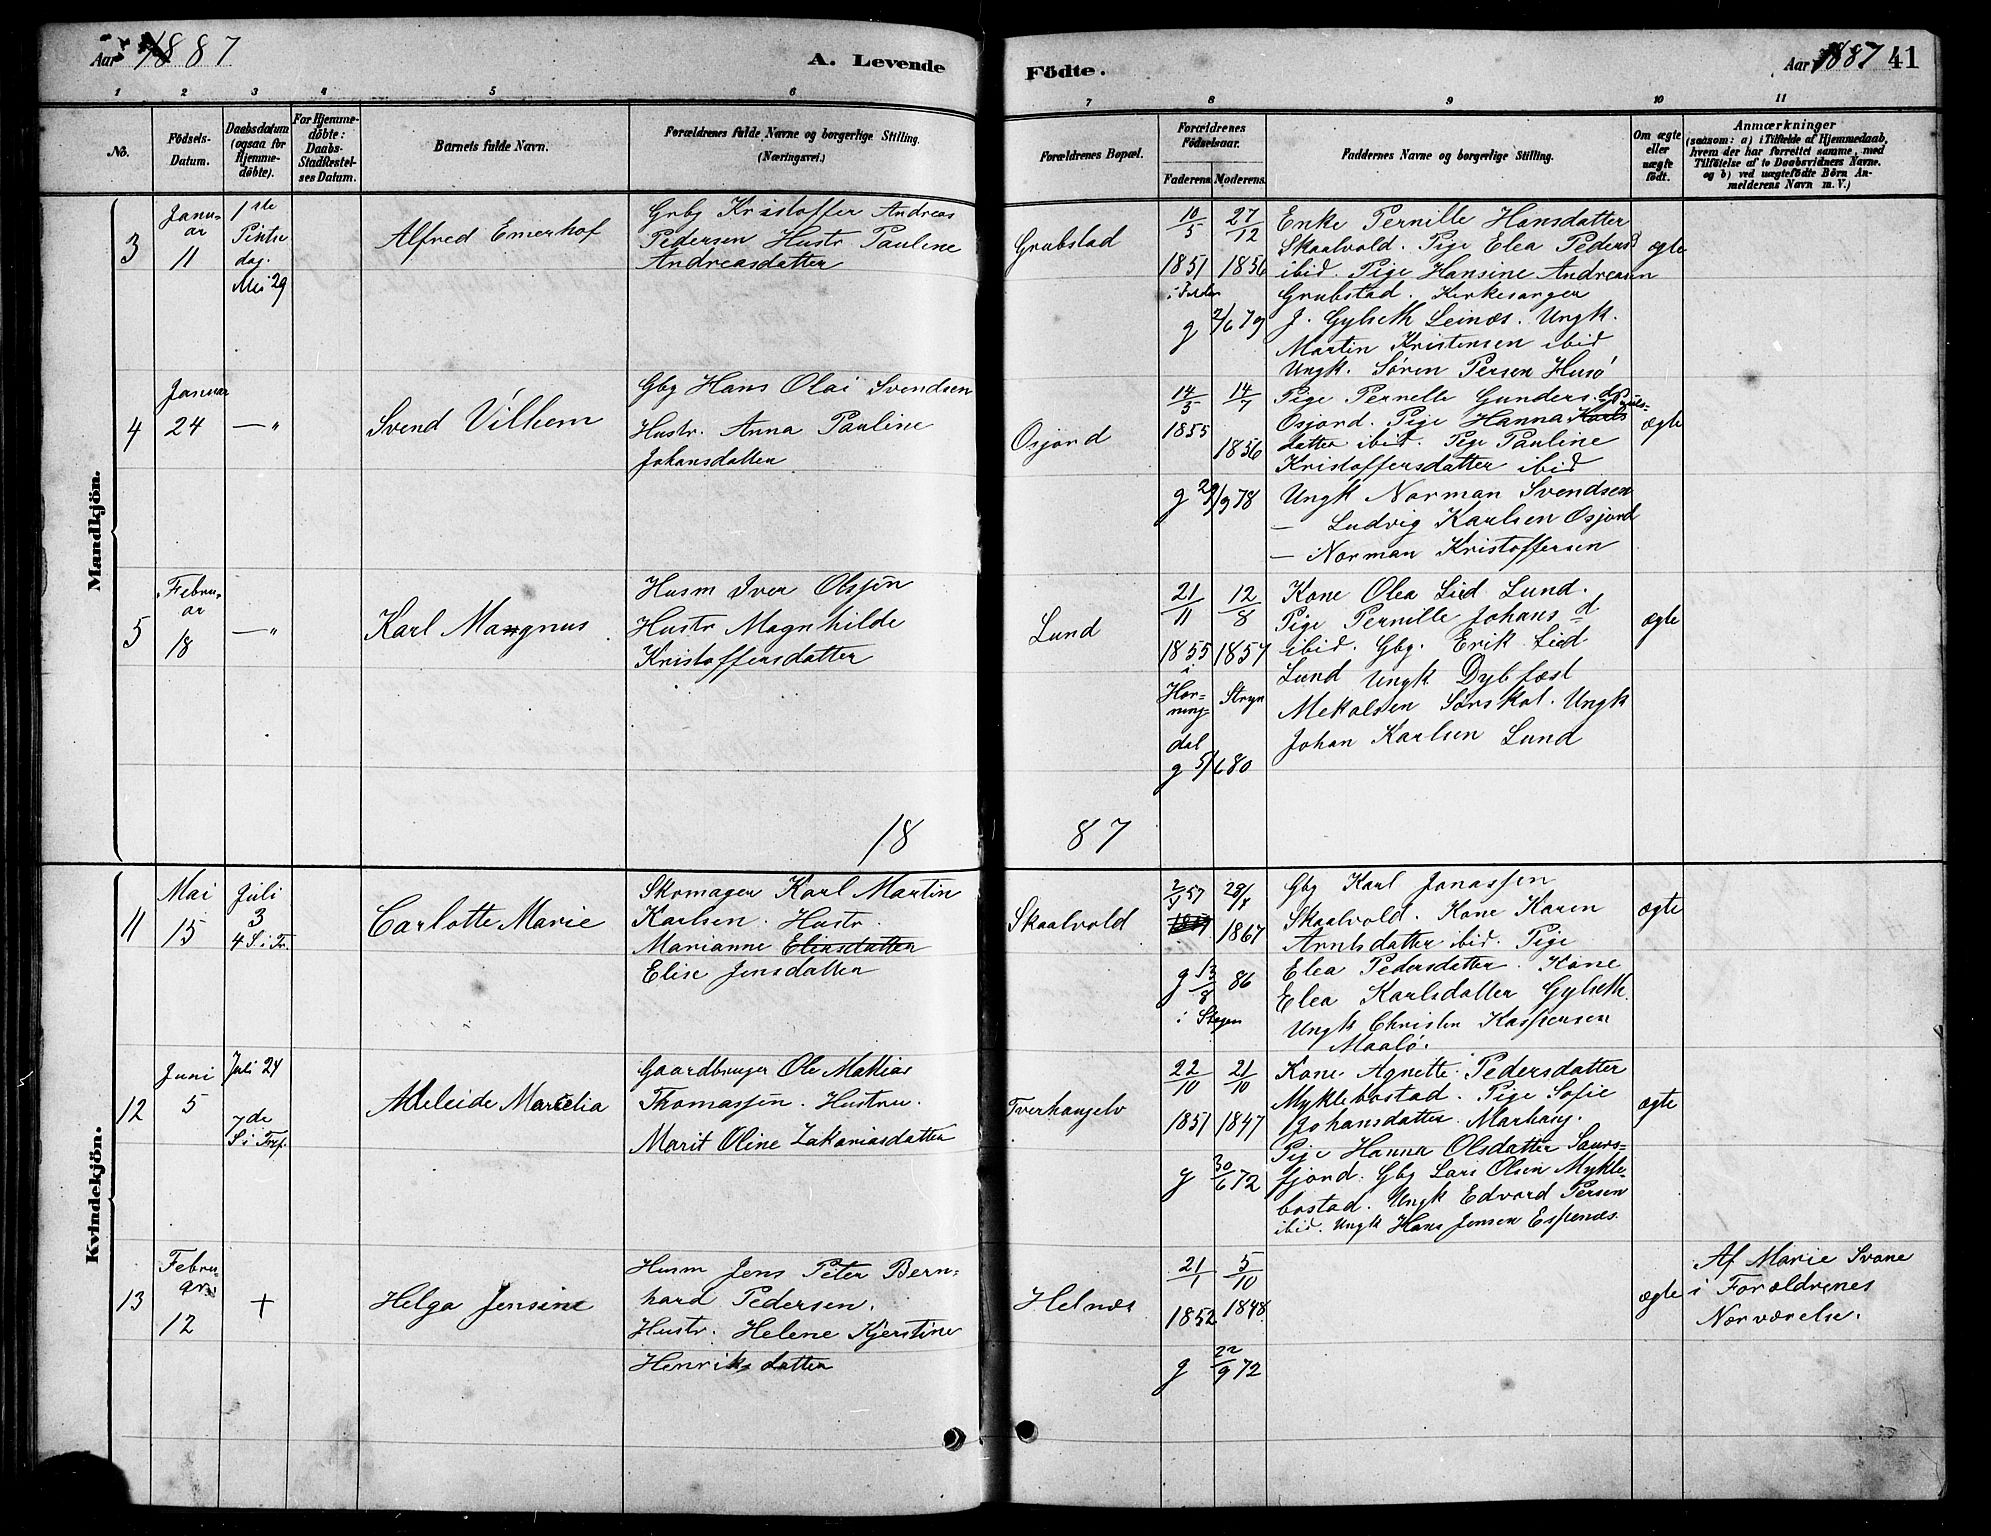 Aar 1887
A. Levende
Födte.
Aar 1887 41
1 2 3 4 5 6 7 8 9 10 11
No.
Födsels-
Datum.
Daabsdatum
(ogsaa for
Hjemme-
døbte).
For Hjemme-
døbte:
Daabs-
Stadfæstel-
ses Datum.
Barnets fulde Navn.
Forældrenes fulde Navne og borgerlige Stilling.
(Næringsvei.)
Forældrenes Bopæl.
Forældrenes
Födselsaar.
Faderens. Moderens.
Faddernes Navne og borgerlige Stilling.
Om ægte
eller
uægte
födt.
Anmærkninger
(saasom: a) i Tilfælde af Hjemmedaab,
hvem der har forrettet samme, med
Tilföielse af to Daabsvidners Navne.
og b) ved uægtefödte Börn An-
melderens Navn m. V.)
Mandkjön.
3
Janu-
ar
11
1ste
Pintse
dag.
Mai 29
Alfred Emerhof
Grbg Kristoffer Andreas
Pedersen Hustr Pauline
Andreasdatter
Grubstad
10/5
1851
27/12
1856
g 2/6 79
Enke Pernille Hansdatter
Skaalvold. Pige Elea Peders d
ibid. Pige Hansine Andreasen
Grubstad. Kirkesanger
J. Gylseth Leines. Ungk.
Martin Kristensen ibid
Ungk. Sören Persen Husö
ægte
4
Januar
24
— "
Svend Vilhem
Gbg Hans Olai Svendsen
Hustr. Anna Pauline
Johansdatter
Osjord
14/5
1855
14/7
1856
g 29/9 78
Pige Pernelle Gunders. d
Osjord. Pige Hanna Karls
datter ibid. Pige Pauline
Kristoffersdatter ibid
Ungk Norman Svendsen
— Ludvig Karlsen Osjord
— Norman Kristoffersen
ægte
5
Febru-
ar
18
— "
Karl Magnus
Husm Iver Olsjön
Hustr Magnhilde
Kristoffersdatter
Lund
21/11
1855
i
Hor-
ning-
dal
12/8
1857
Stryn
g 5/6 80
Kone Olea Lied Lund.
Pige Pernille Johans d
ibid. Gbg. Erik Lied
Lund Ungk Dybfest
Mekalsen Sørskot. Ungk
Johan Karlsen Lund
ægte
18 87
Kvindekjön.
11
Mai
15
Juli
3
4 S i Tr.
Carlotte Marie
Skomager Karl Martin
Karlsen. Hustr
Marianne Eliasdatter
Elise Jensdatter
Skaalvold
1867
g 13/8 86
i Stegen
Gbg Karl Jonassen
Skaalvold. Kone Karen
Arntsdatter ibid. Pige
Elea Pedersdatter. Kone
Elea Karlsdatter Gylseth.
Ungk Christen Kaspersen
Maalö.
ægte
12
Juni
5
Juli 24
7de
S i Tref.
Adeleide Marcelia
Gaardbruger Ole Mathias
Thomassen. Hustru.
Marit Oline Zakariasdatter
Tverhangelv
22/10
1851
21/10
1847
g 30/6 72
Kone Agnette Pedersdatter
Myklebostad. Pige Sofie
Johansdatter Marhaug.
Pige Hanna Olsdatter Saurs-
fjord. Gbg Lars Olsen Mykle-
bostad. Ungk Edvard Persen
ibid. Ungk Hans Jensen Espenes
ægte
13
Febru-
ar.
12
+
Helga Jensine
Husm Jens Peter Bern-
hard Pedersen.
Hustr. Helene Kjerstine
Henriksdatter
Helnes
21/1
1852
5/10
1848
g 22/9 72
ægte
Af Marie Svane
i Forældrenes
Nærværelse.